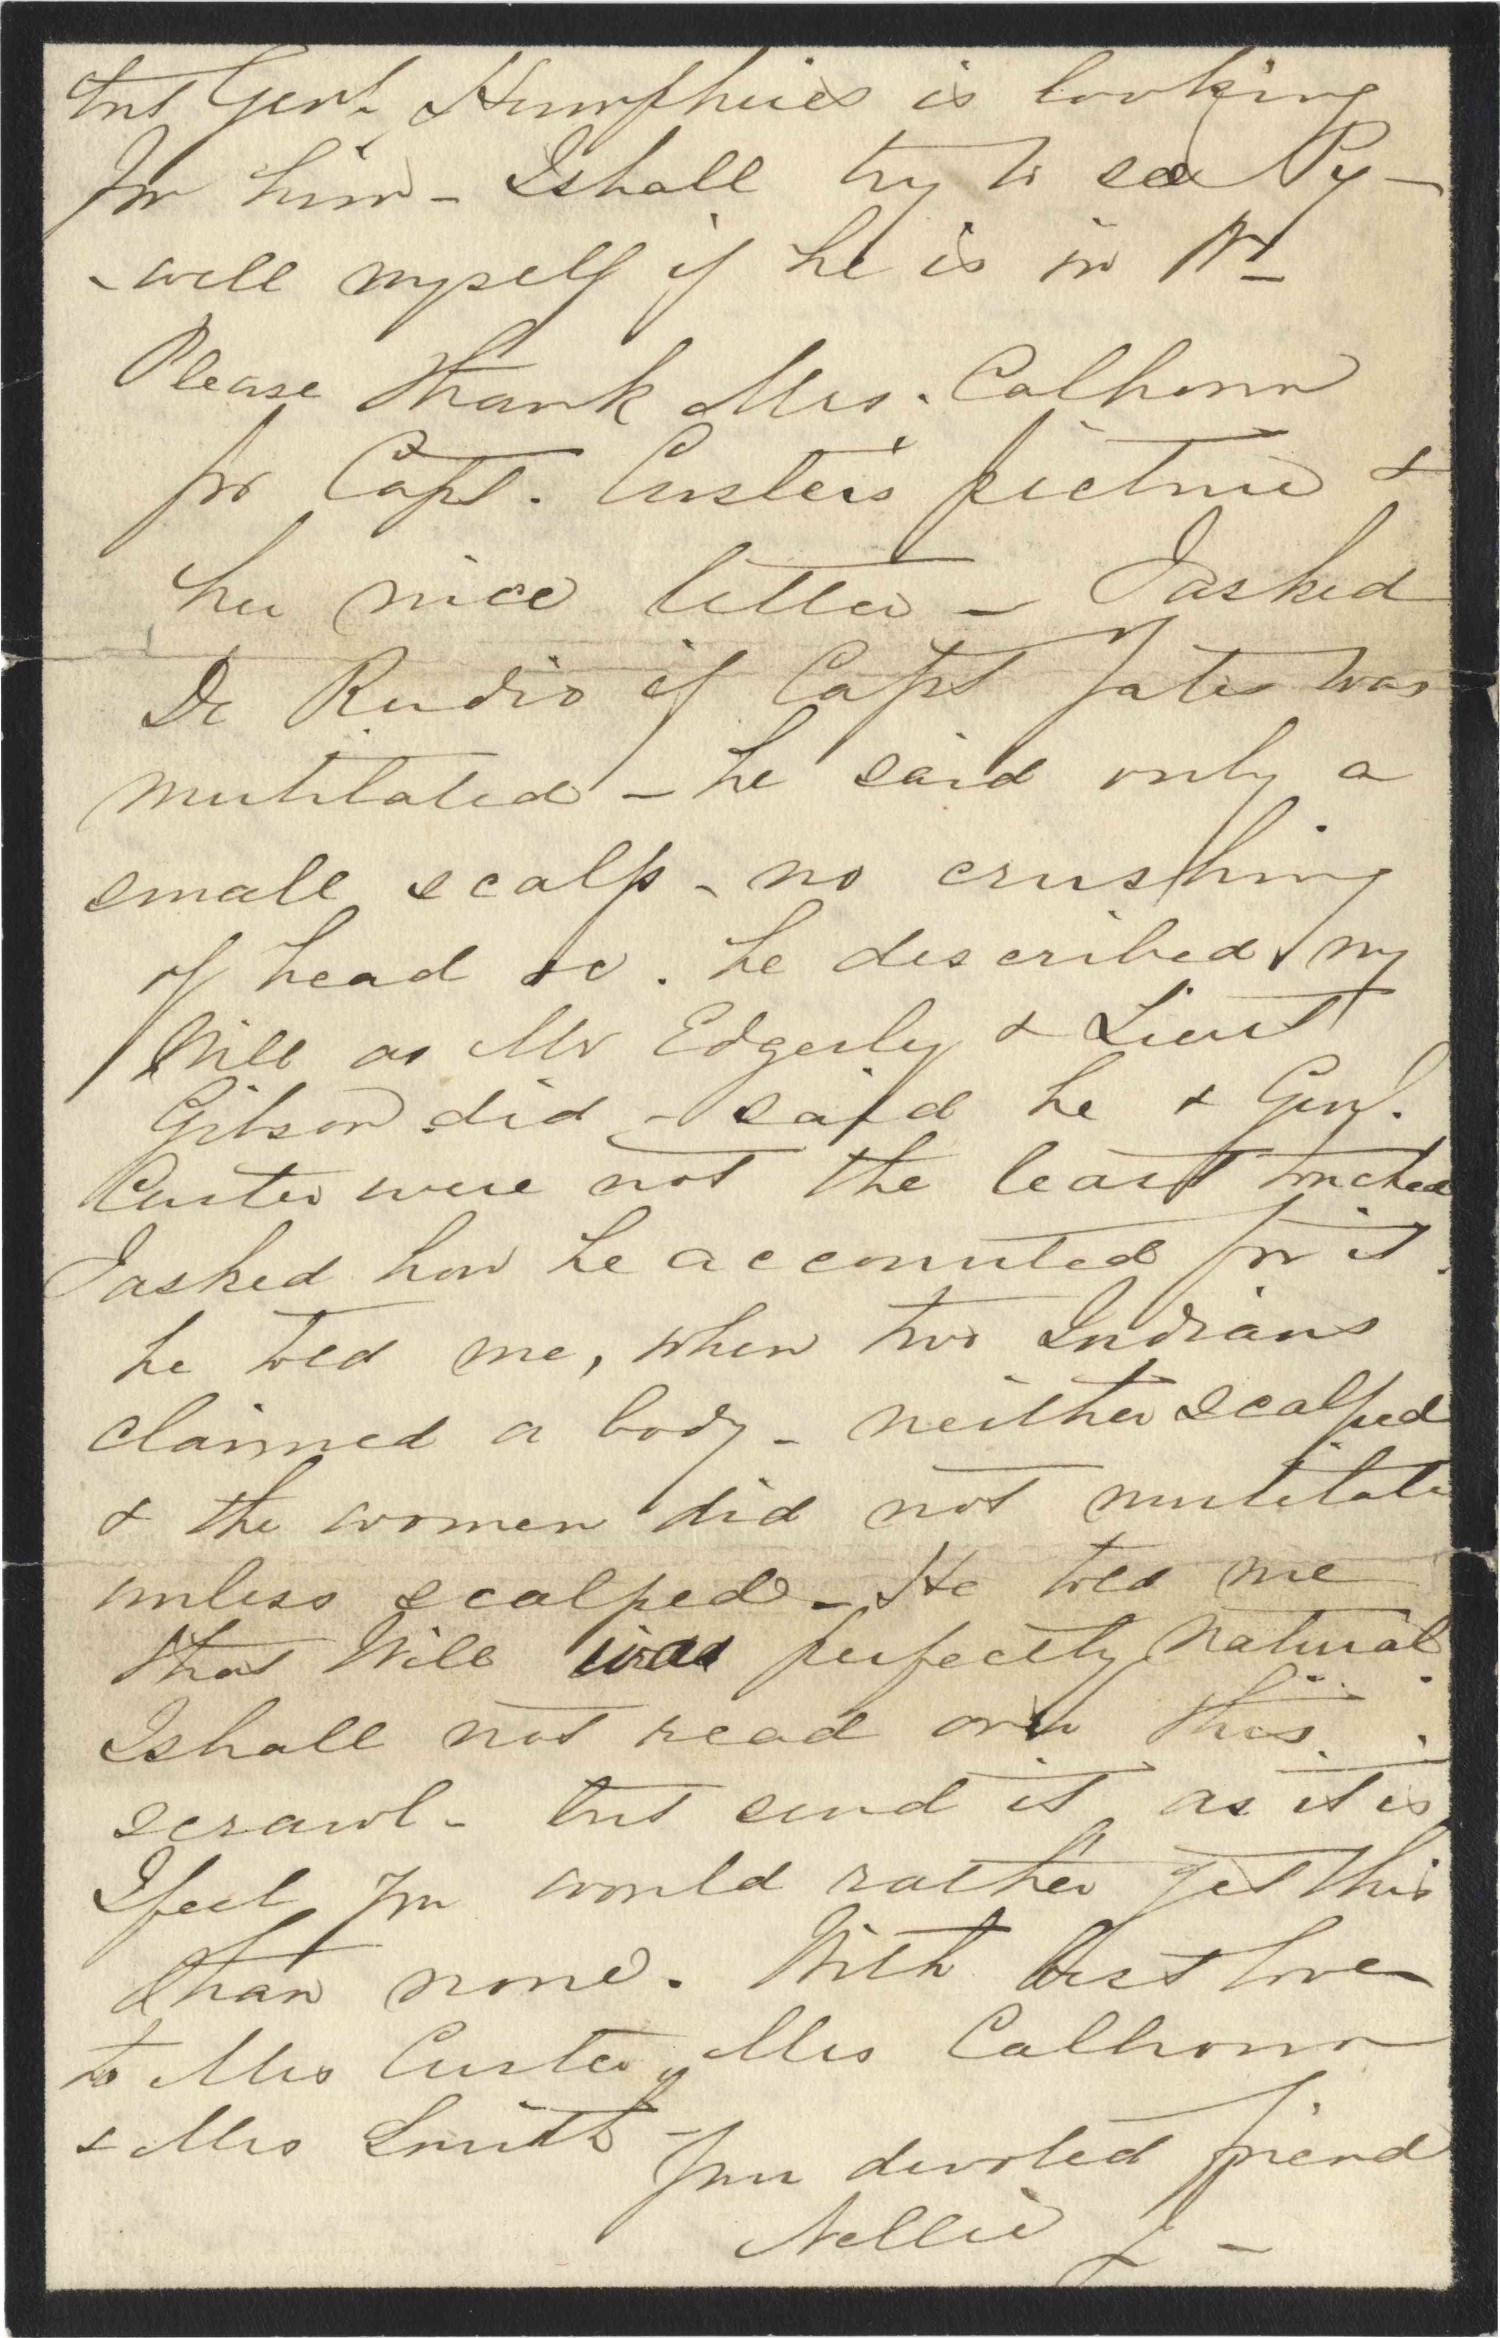 but Genl. Humphries is looking
for him - I shall try to see Py-
-well myself if he is in N-
Please thank Mrs. Calhoun
for Capt. Custer's picture &
her nice letter - I asked
De Rudio if Capt Yates was
mutilated - he said only a
small scalp - no crushing
of head &c. he described my
Will as Mr Edgerly & Lieut
Gibson did - said he & Genl.
Custer were not the least touched
I asked how he accounted for it.
he told me, when two Indians
claimed a body - neither scalped
& the women did not mutilate
unless scalped - He told me
that Will was perfectly natural.
I shall not read over this
scrawl - but send it as it is
I feel you would rather get this
than none. With best love
to Mrs Custer, Mrs Calhoun
& Mrs Smith -
Your devoted friend
Nellie